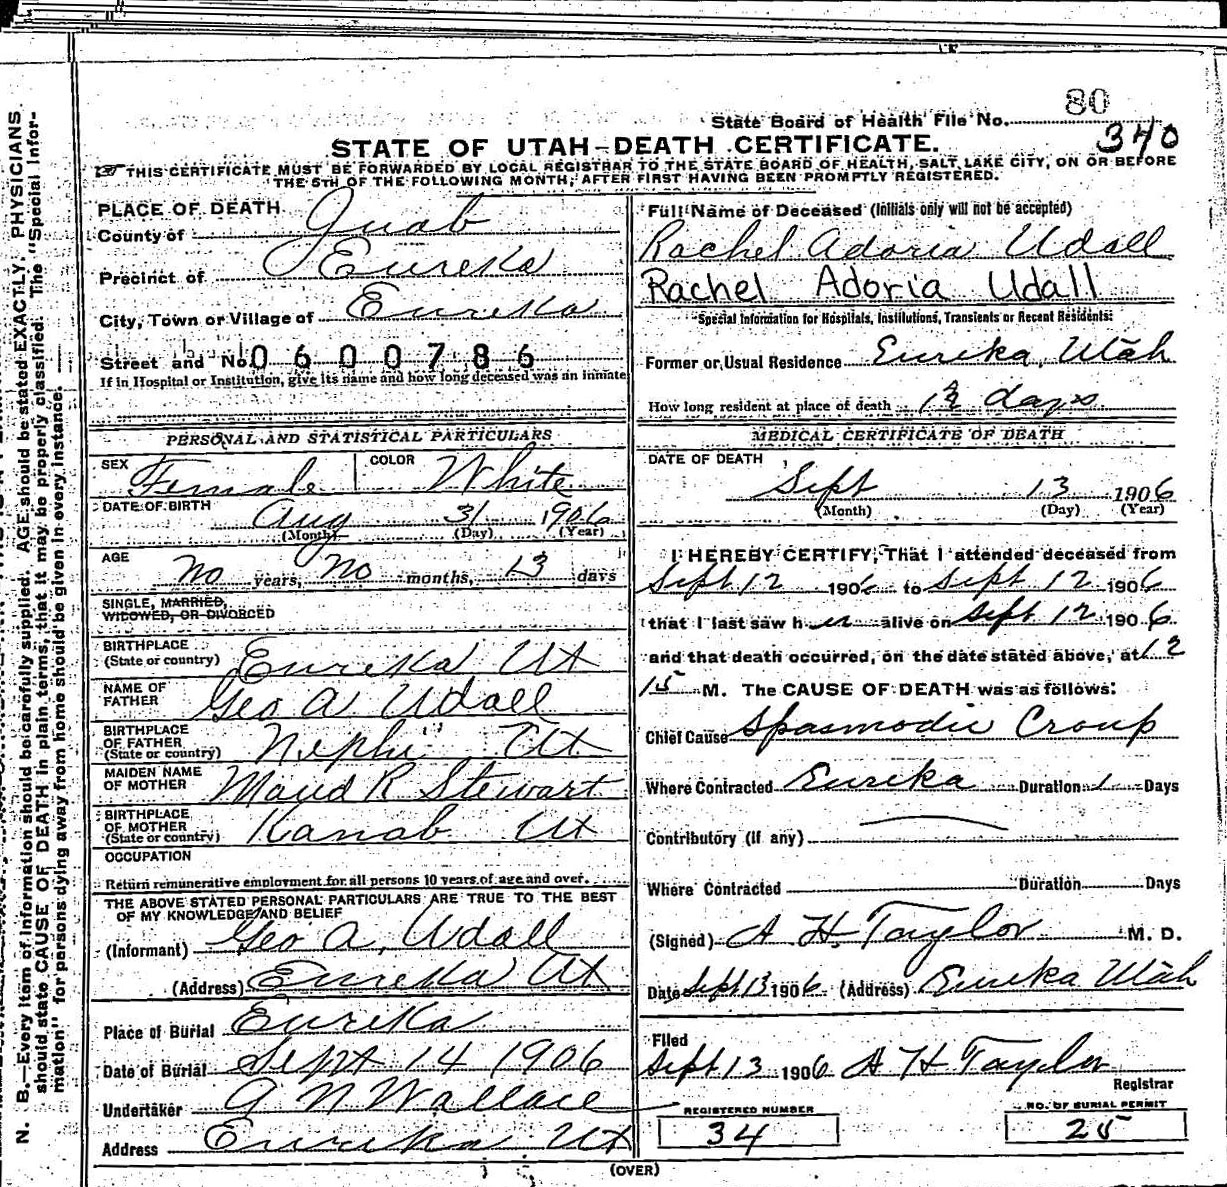 80
State Board of Health File No.
340
STATE OF UTAH—DEATH CERTIFICATE.
THIS CERTIFICATE MUST BE FORWARDED BY LOCAL REGISTRAR TO THE STATE BOARD OF HEALTH, SALT LAKE CITY, ON OR BEFORE
THE 5TH OF THE FOLLOWING MONTH, AFTER FIRST HAVING BEEN PROMPTLY REGISTERED.
PLACE OF DEATH
County of Juab
Precinct of Eureka
City, Town or Village of Eureka
Street and No. 0600786
If in Hospital or Institution, give its name and how long deceased was an inmate
PERSONAL AND STATISTICAL PARTICULARS
SEX Female COLOR White
DATE OF BIRTH Aug 31 1906
(Month) (Day) (Year)
AGE No years, No months, 13 days
SINGLE, MARRIED,
WIDOWED, OR DIVORCED
BIRTHPLACE
(State or country) Eureka Ut
NAME OF
FATHER Geo A Udall
BIRTHPLACE
OF FATHER
(State or country) Nephi Ut
MAIDEN NAME
OF MOTHER Maud R Stewart
BIRTHPLACE
OF MOTHER
(State or country) Kanab Ut
OCCUPATION
Return remunerative employment for all persons 10 years of age and over.
THE ABOVE STATED PERSONAL PARTICULARS ARE TRUE TO THE BEST
OF MY KNOWLEDGE AND BELIEF
(Informant) Geo A. Udall
(Address) Eureka Ut
Place of Burial Eureka
Date of Burial Sept 14 1906
Undertaker G N Wallace
Address Eureka Ut
Full Name of Deceased (Initials only will not be accepted)
Rachel Adoria Udall
Rachel Adoria Udall
Special Information for Hospitals, Institutions, Transients or Recent Residents:
Former or Usual Residence Eureka, Utah
How long resident at place of death days
MEDICAL CERTIFICATE OF DEATH
DATE OF DEATH
Sept 13 1906
(Month) (Day) (Year)
I HEREBY CERTIFY, That I attended deceased from
Sept 12 1906 to Sept 12 1906
that I last saw her alive on Sept 12 1906
and that death occurred, on the date stated above, at 12
15 M. The CAUSE OF DEATH was as follows:
Chief Cause Spasmodic Croup
Where Contracted Eureka Duration 1 Days
Contributory (if any)
Where Contracted Duration Days
(Signed) A H. Taylor M. D.
Date Sept 13 1906 (Address) Eureka Utah
Filed
Sept 13 1906 A H Taylor
Registrar
REGISTERED NUMBER
34
NO. OF BURIAL PERMIT
25
(OVER)
N. B.—Every item of information should be carefully supplied. AGE should be stated EXACTLY. PHYSICIANS
should state CAUSE OF DEATH in plain terms, that it may be properly classified. The "Special Infor-
mation" for persons dying away from home should be given in every instance.